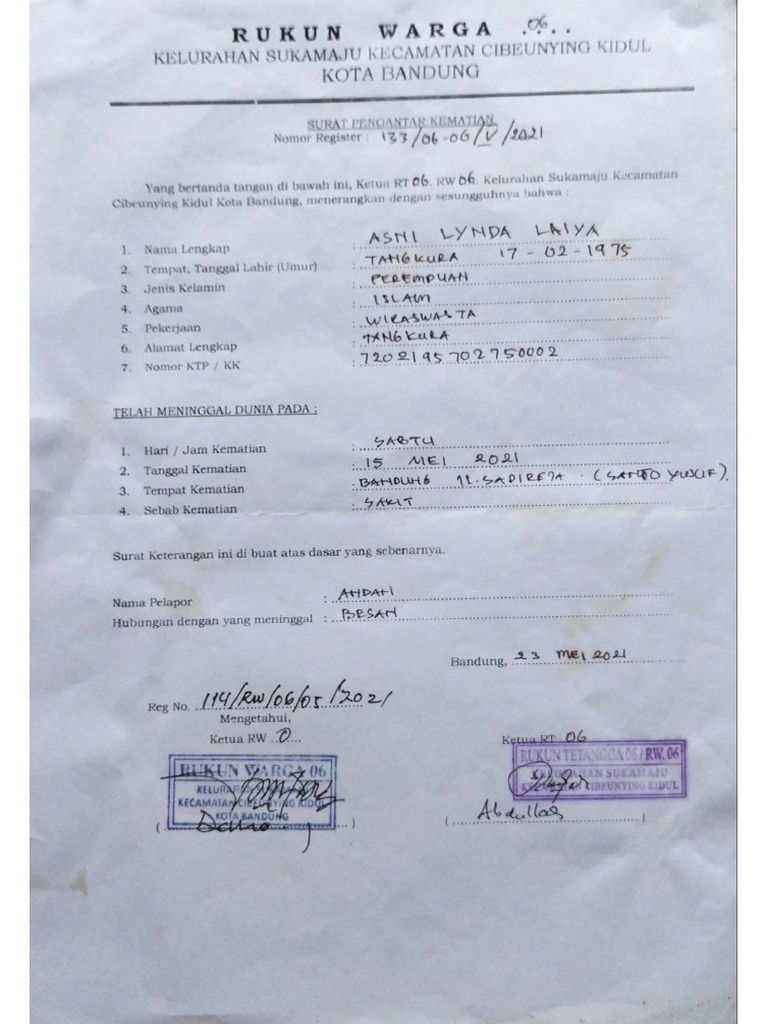 RUKUN WARGA 06
KELURAHAN SUKAMAJU KECAMATAN CIBEUNYING KIDUL
KOTA BANDUNG
SURAT PENGANTAR KEMATIAN
Nomor Register : 133/06-06/V/2021
Yang bertanda tangan di bawah ini, Ketua RT 06. RW 06. Kelurahan Sukamaju Kecamatan
Cibeunying Kidul Kota Bandung, menerangkan dengan sesungguhnya bahwa :
1. Nama Lengkap : ASNI LYNDA LAIYA
2. Tempat, Tanggal Lahir (Umur) : TANGKURA 17-02-1975
3. Jenis Kelamin : PEREMPUAN
4. Agama : ISLAM
5. Pekerjaan : WIRASWASTA
6. Alamat Lengkap : TANGKURA
7. Nomor KTP / KK : 7202195702750002
TELAH MENINGGAL DUNIA PADA :
1. Hari / Jam Kematian : SABTU
2. Tanggal Kematian : 15 MEI 2021
3. Tempat Kematian : BANDUNG JL. (SANTO YUSUF).
4. Sebab Kematian : SAKIT
Surat Keterangan ini di buat atas dasar yang sebenarnya.
Nama Pelapor : ANDANI
Hubungan dengan yang meninggal : BESAN
Bandung, 23 MEI 2021
Reg No. 114/RW/06/05/2021
Mengetahui,
Ketua RW 0
Ketua RT 06
RUKUN WARGA 06
KELURAHAN
KECAMATAN CIBEUNYING KIDUL
KOTA BANDUNG
RUKUN TETANGGA 06 / RW. 06
KELURAHAN SUKAMAJU
KECAMATAN CIBEUNYING KIDUL
(                    )
( Abdullah )